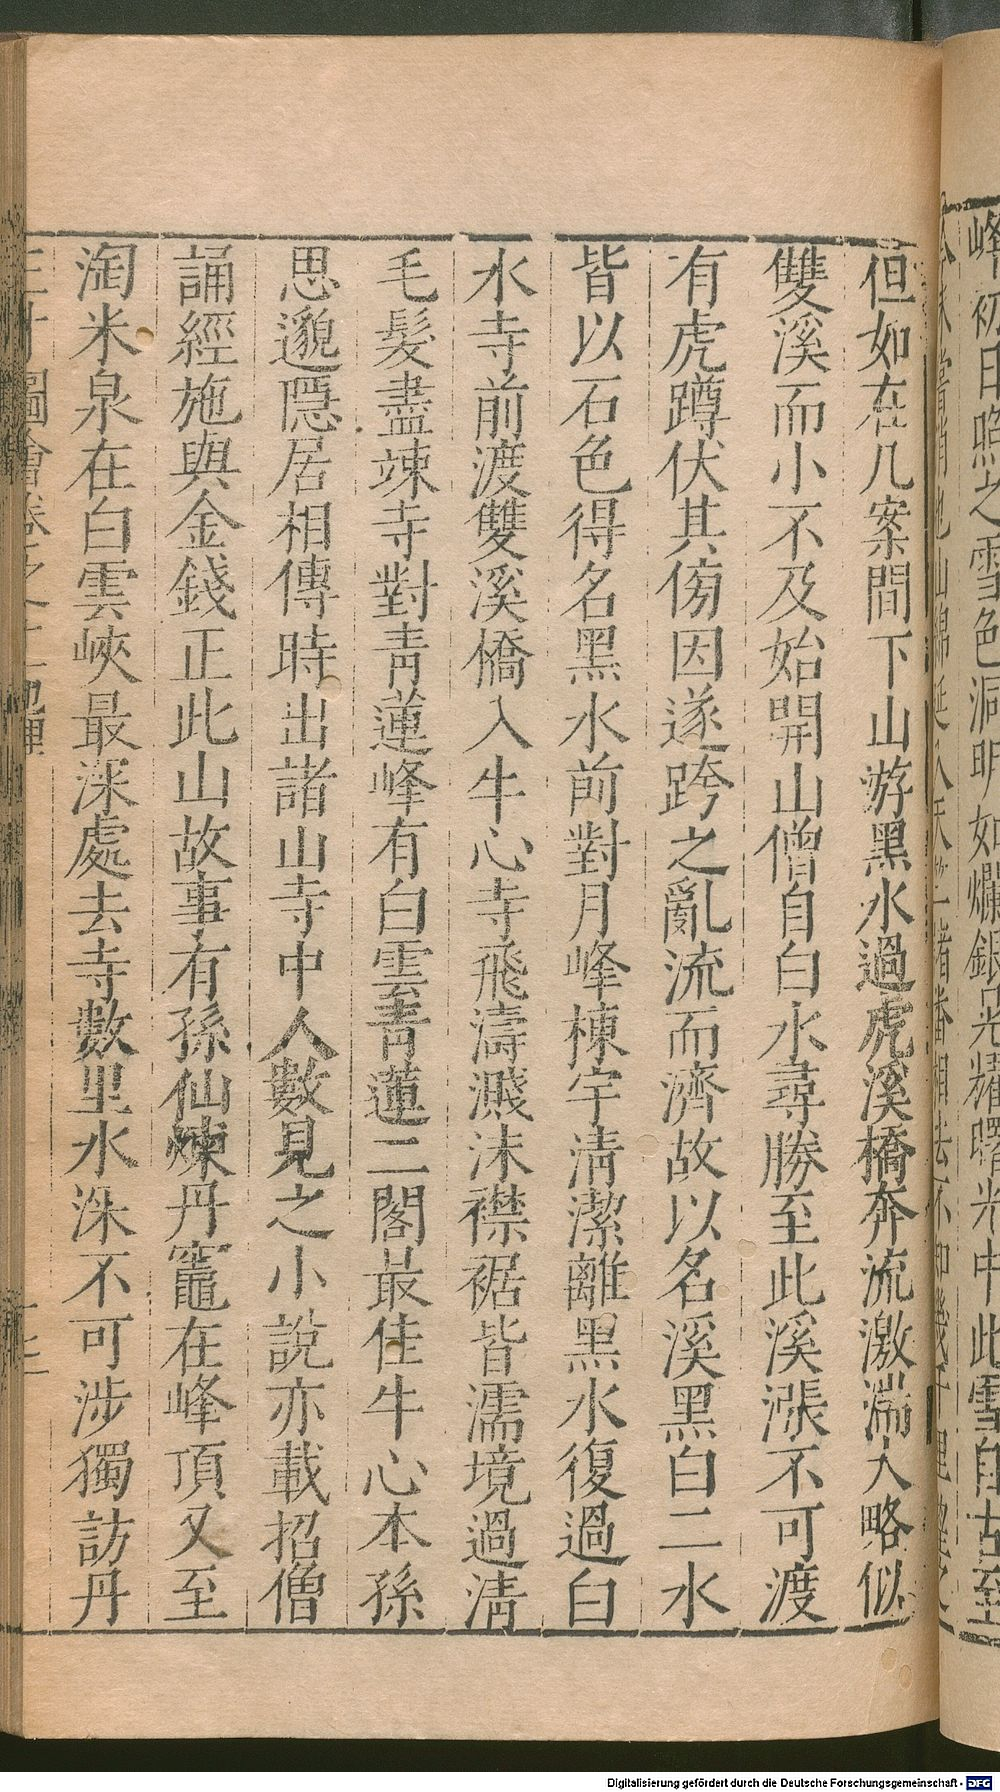 峰初日照之雪色洞明如爛銀晃耀曙光中此雪自古至
但如在几案間下山游黑水過虎溪橋奔流激湍大略似
雙溪而小不及始開山僧自白水尋勝至此溪漲不可渡
有虎蹲伏其傍因遂跨之亂流而濟故以名溪黑白二水
皆以石色得名黑水前對月峰棟宇清潔離黑水復過白
水寺前渡雙溪橋入牛心寺飛濤濺沫襟裾皆濡境過清
毛髮盡竦寺對青蓮峰有白雲青蓮二閣最佳牛心本孫
思邈隱居相傳時出諸山寺中人數見之小說亦載招僧
誦經施與金錢正此山故事有孫仙煉丹竈在峰頂又至
淘米泉在白雲峽最深處去寺數里水洙不可涉獨訪丹
三才圖會卷之
Digitalisierung gefördert durch die Deutsche Forschungsgemeinschaft - DFG